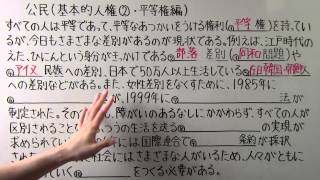 公民(基本的人権②・平等権編)
すべての人は平等であって、平等なあつかいをうける権利(①平等権)を持ってい
るが、今日もさまざまな差別があるのが現状である。例えば、江戸時代の
えた、ひにんという身分が② 部落 差別(同和問題)や
③アイヌ民族への差別、日本で50万人以上生活している
への差別などがある。また、女性差別をなくすために、1985年に
⑤ が、1999年に⑥ 法が
制定された。その 、障がいのあるなしにかかわらず、すべての人が
区別されること うの生活を送る の実現が
求められてい 年には国際連合で 条約が採択
さまざまな人がいるため、人々がともに
をつくる必要がある。